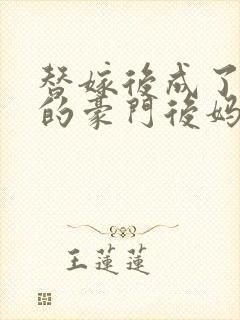 替嫁後成了
的豪門後媽
王蓮蓮